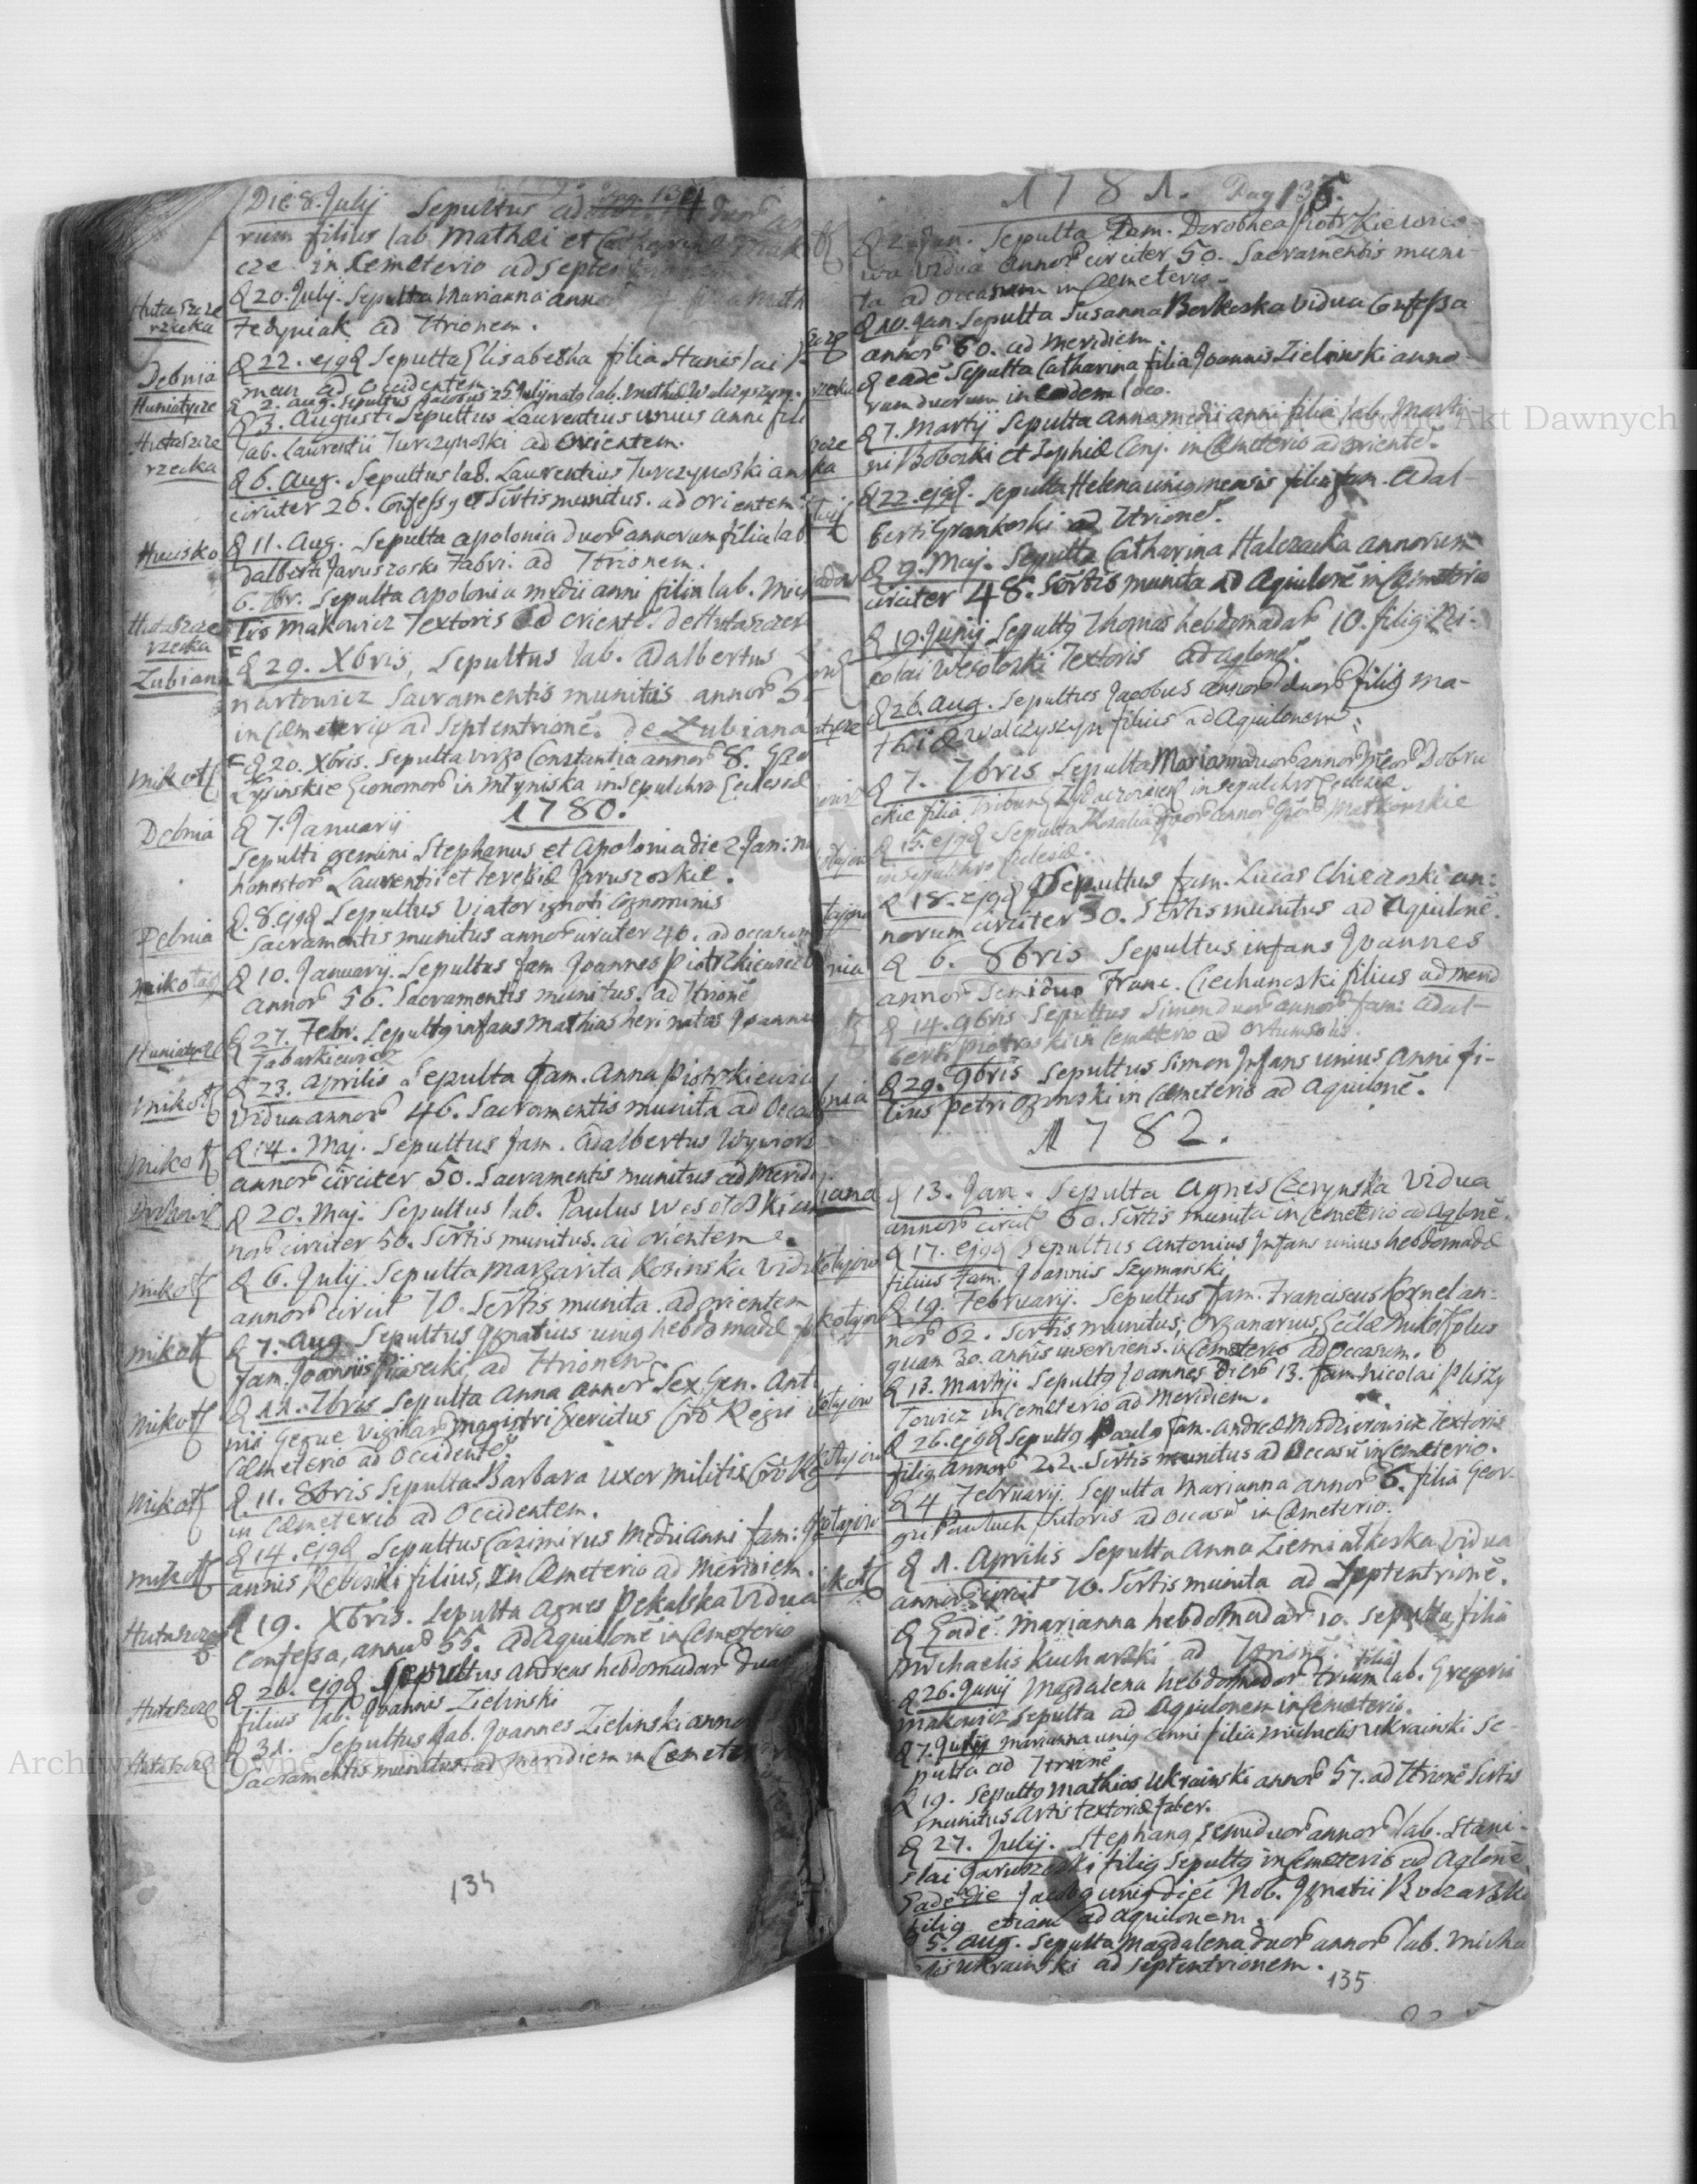 Die 8. Julij Sepultus ad
rum filius lab. Mathæi et
cze in Cemeterio ad Septen
Hutaszcze
rzecka
D 20. Julij. Sepulta Marianna anno
Fedyniak ad 7trionem.
Debnia
D 22. ejqd Sepulta Elisabetha filia Stanislai
ad Occidentem.
Huniatycze
D 2. aug. Sepultus Jacobus 25 Julij natq lab. Mathiæ Walczyszyn.
Hutaszcze
rzecka
D 3. Augusti Sepultus Laurentius unius anni fili
lab. Laurentii Jurczynoski ad Orientem.
D 6. Aug. Sepultus lab. Laurentius Jurczynoski an
circiter 26. Confessq et Srtis munitus. ad orientem
Hucisko
D 11. Aug. Sepulta apolonia duor annorum filia lab
dalberti Jaruszoski Fabri. ad 7trionem.
6. 7br. Sepulta apolonia medii anni filia lab. Mic
Hutaszcze
rzecka
lis Makowicz Textoris ad oriente. de Hutaszcze
Zubiana
D 29. Xbris, Sepultus lab. Adalbertus
nartowicz Sacramentis munitus annor
in Cæmeterio ad Septentrione. de Zubiana
Mikoł
D 20. Xbris. Sepulta virgo Constantia annor 8.
in Młyniska in Sepulchro Ecclesiæ
1780.
Debnia
D 7. Januarij
Sepulti gemini Stephanus et Apolonia die 2 Jan: n
honestor Laurentii et Jaruszoskie.
Debnia
D. 8. ejqd Sepultus Viator ignoti Cognominis
Sacramentis munitus annor circiter 40. ad occasum
Mikołaj
D 10. Januarij. Sepultus fam. Joannes Piotrkiewicz
annor 56. Sacramentis munitus. ad 7trione
Huniatycze
D 27. Febr. Sepultq infans Mathias heri natus Joannis
Tabarkiewicz
Mikoł
D 23. Aprilis Sepulta fam. Anna Piotrkiewicz
Vidua annor 46. Sacramentis munita ad Occa
Mikoł
D 14. Maj. Sepultus fam. Adalbertus
annor circiter 50. Sacramentis munitus ad Merid
D 20. Maj. Sepultus lab. Paulus Wesołoski an
nor circiter 50. Srtis munitus. ad orientem.
Mikoł
D 6. Julij. Sepulta Margarita Kosinska vidu
annor circit 70. Srtis munita. ad orientem
Mikoł
D 7. Aug. Sepultus Ignatius uniq hebdomadæ
fam. Joannis Piasecki ad 7trionem.
Mikoł
D 11. 7bris Sepulta Anna annor Sex Gen. Ant
nii Magistri Exercitus
Cæmeterio ad Occidente.
Mikoł
D. 11. 8bris Sepulta Barbara uxor militis
in Cæmeterio ad Occidentem.
Mikoł
D 14. ejqd Sepultus Casimirus Medii anni fam: Jo
annis filius, in Cæmeterio ad Meridiem.
Hutaszcze
D 19. Xbris. Sepulta Agnes Pekalska Vidua
Confessa, annor 55. ad Aquilone in Cemeterio
Hutaszcze
D 26. ejqd Sepultus Andreas hebdomadar duar
filius lab. Joannis Zielinski
Hutaszcze
D 31. Sepultus lab. Joannes Zielinski anno
Sacramentis munitus ad meridiem in Cemeter
134
1781. Pag 135.
D 2. Jan. Sepulta Fam. Dorothea Piotrkiewico
wa vidua annor circiter 50. Sacramentis muni-
ta ad Occasum in Cemeterio.
D 10. Jan. Sepulta Susanna Borkoska Vidua Confessa
annor 60. ad Meridiem.
D eade Sepulta Catharina filia Joannis Zielinski anno-
rum duorum in eodem loco.
D 7. Martij Sepulta anna medii anni filia lab. Marti
ni Boboski et Sophiæ Conj. in Cæmeterio ad oriente.
D 22. ejqd. Sepulta Helena uniq mensis filia fam. Adal-
berti Grankoski ad 7trione.
D 9. Maj. Sepulta Catharina Halczacka annorum
circiter 48. Srtis munita ad Aquilone in Cæmeterio
D 19. Junij Sepultq Thomas hebdomadar 10. filiq Ni-
colai Wesołoski Textoris ad aqlone.
D 26. Aug. Sepultus Jacobus annor duor filiq Ma-
thiæ Walczyszyn filius ad Aquilonem.
D 7. 7bris Sepulta Marianna duor annor
filia in Sepulchro Ecclesiæ.
D 15. ejqd Sepulta Rosalia annor
in Sepulchro Ecclesiæ.
D 18. ejqd Sepultus fam. Lucas an:
norum circiter 30. Srtis munitus ad Aquilone.
D 6. 8bris Sepultus infans Joannes
annor Semiduo Franc. Ciechanoski filius ad merid
D 14. 9bris Sepultus Simon duor annor fam: Adal-
berti Piotroski in Cemeterio ad Ortum solis.
D 29. 9bris Sepultus Simon Infans unius anni fi-
lius Petri in Cæmeterio ad Aquilone.
1782.
D 13. Jan. Sepulta Agnes Czerynska Vidua
annor circit 60. Srtis munita in Cemeterio ad Aqlone.
D 17. ejqd Sepultus Antonius Infans unius hebdomadæ
filius Fam. Joannis Szymanski
D 19. Februarij. Sepultus fam. Franciscus Kornel an-
nor 62. Srtis munitus, Organarius, Eccliæ Mikoł plus
quam 30. annis inserviens. in Cæmeterio ad Occasum.
D 13. Martij Sepultq Joannes dier 13. fam. Nicolai Pliszy
towicz in Cemeterio ad Meridiem.
D 26. ejqd Sepultq Paulq fam. Andreæ Textoris
filiq annor 22. Srtis munitus ad Occasu in Cemeterio.
D 4 Februarij. Sepulta Marianna annor 6. filia Geor-
gii Pauluch Sutoris ad Occasu in Cæmeterio.
D 1. Aprilis Sepulta Anna Ziemiałkoska Vidua
annor circit 70. Srtis munita ad Septentrione.
D Eade Marianna hebdomadar 10. Sepulta, filia
Michaelis Kucharski ad 7trione. filia
D 26. Junij Magdalena hebdomadar trium lab. Gregorii
Makowicz Sepulta ad Aquilonem in Cemeterio.
D 7. Julij Marianna uniq anni filia Michaelis Ukrainski Se-
pulta ad 7trione
D 19. Sepultq Mathias Ukrainski annor 57. ad 7trione Srtis
munitus artis textoriæ faber.
D 27. Julij. Stephanq semiduor annor lab. Stani-
slai Jaruszoski filiq Sepultq in Cemeterio ad Aqlone
Eade die Jacobq uniq diei Nob. Ignatii
filiq etiam ad Aquilonem.
D 5. Aug. Sepulta Magdalena duor annor lab. Micha
elis Ukrainski ad Septentrionem.
135
Archiwum Główne Akt Dawnych
Archiwum Główne Akt Dawnych